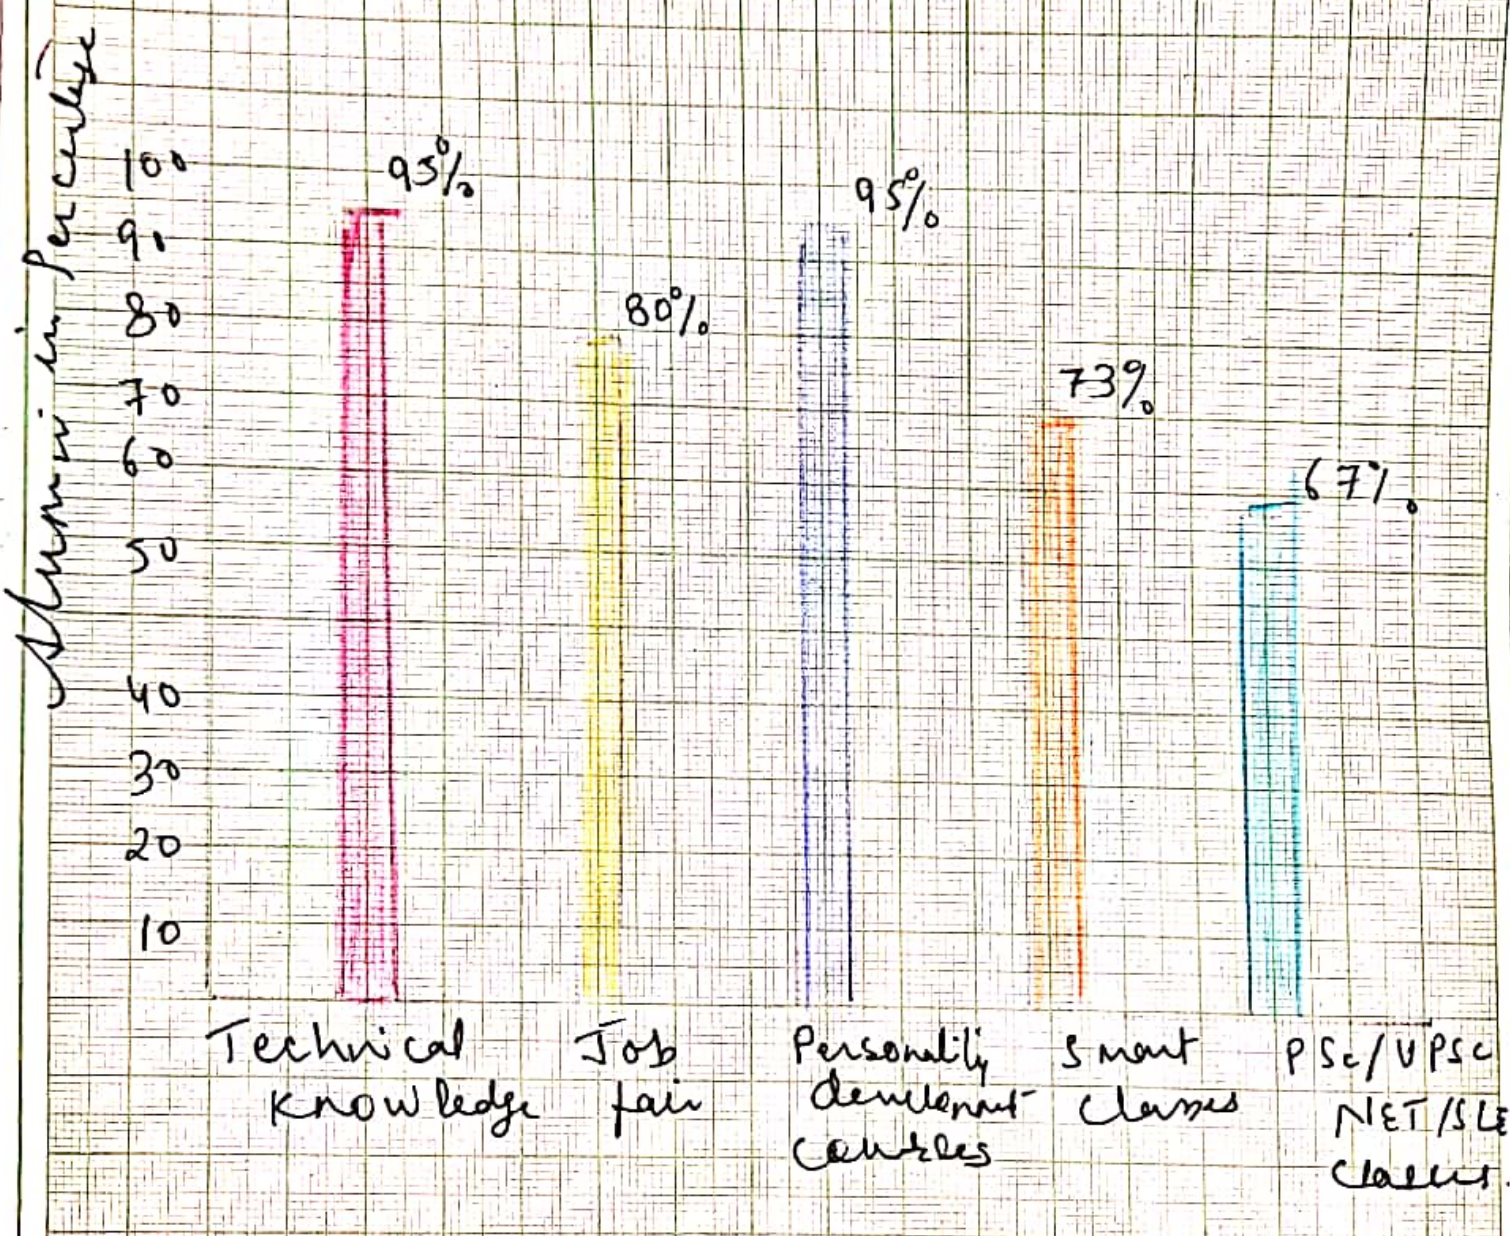 Alumni in Percentage
100
90
80
70
60
50
40
30
20
10
95%
80%
95%
73%
67%
Technical
Knowledge
Job
fair
Personality
develepmnt
courses
Smart
Classes
PSC/UPSC
NET/SLE
Classes.